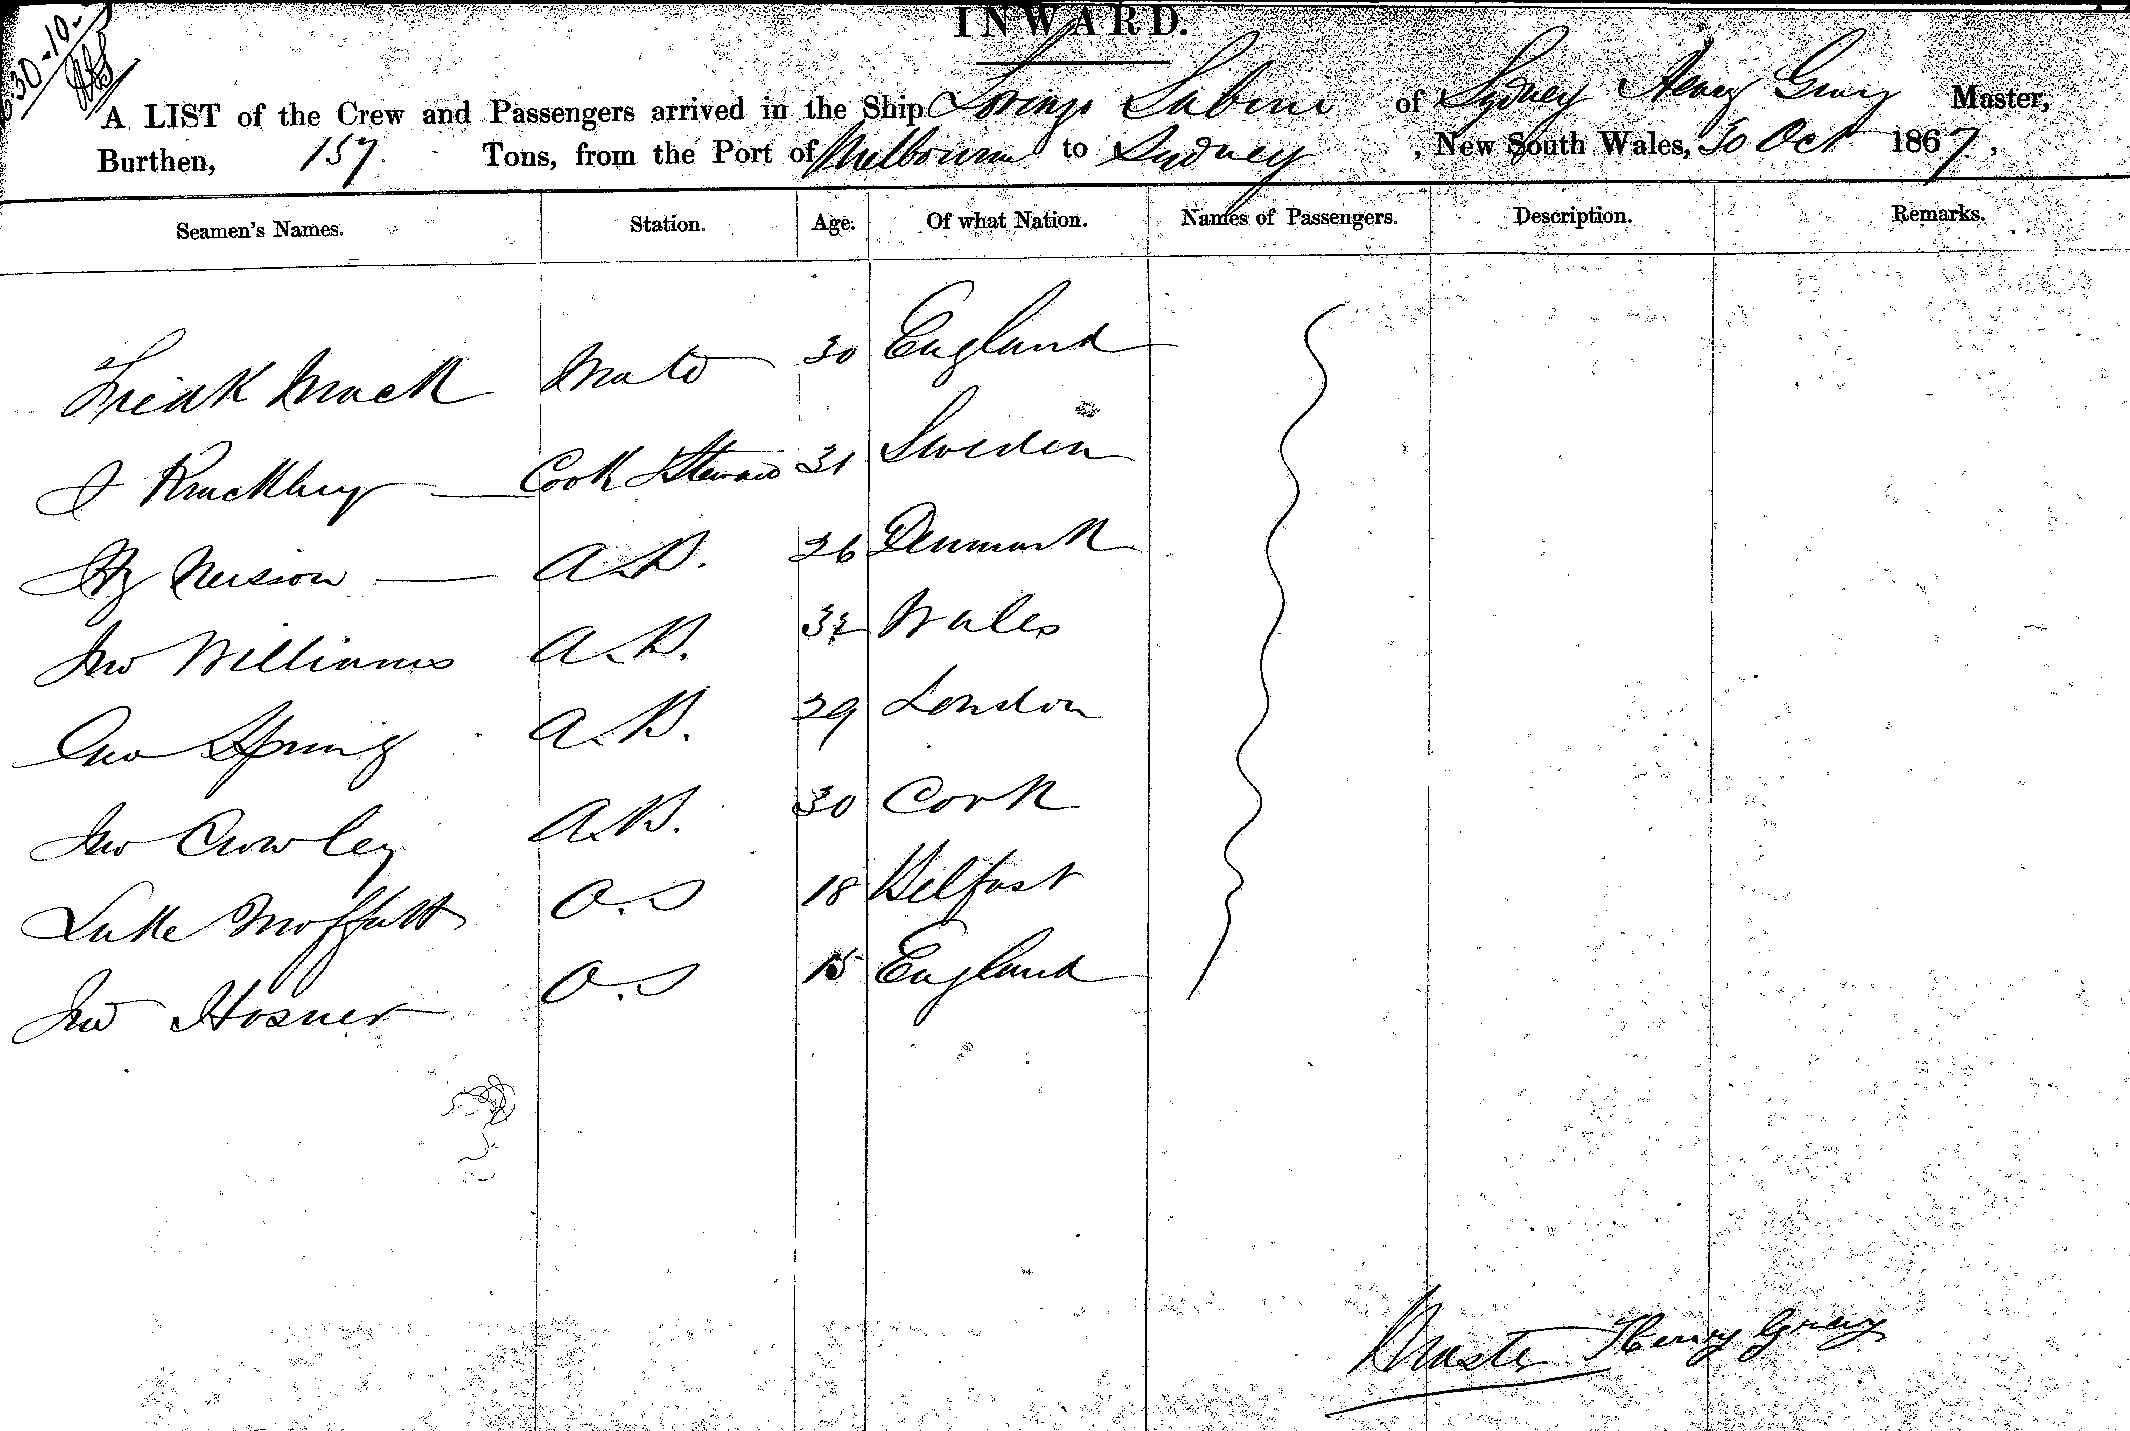 30-10-
INWARD.
A LIST of the Crew and Passengers arrived in the Ship Lorenzo Sabine of Sydney Henry Grey Master,
Burthen, 157. Tons, from the Port of Melbourne to Sydney, New South Wales, 30 Oct 1867.
Seamen's Names. Station. Age. Of what Nation. Names of Passengers. Description. Remarks.
Mack Mate 30 England
Cook & Steward 31 Sweden
Hy A.B. 26 Denmark
Jno Williams A.B. 32 Wales
Geo Spring A.B. 29 London
Jno Crowley A.B. 30 Cork
Luke Moffatt O.S 18 Belfast
Jno Hosner O.S 15 England
Master Henry Grey